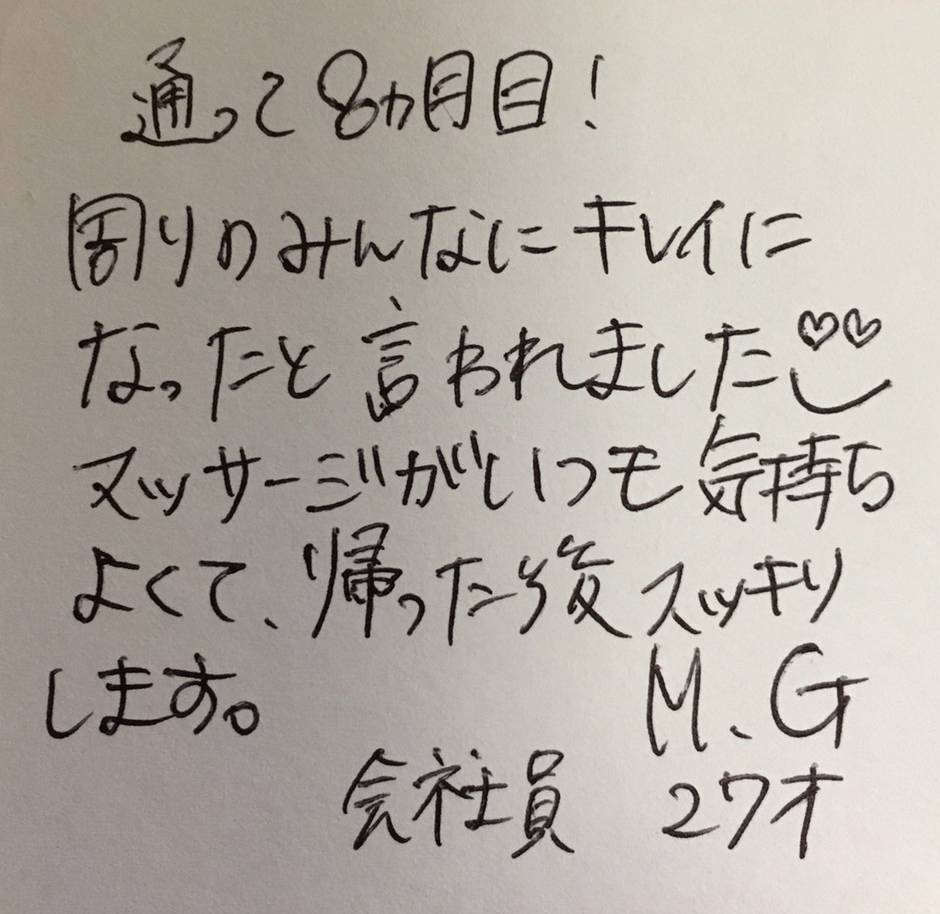 通って8ヵ月目!
周りのみんなにキレイに
なったと言われました
マッサージがいつも気持ち
よくて、帰った後スッキリ
します。
M.G
会社員 27才